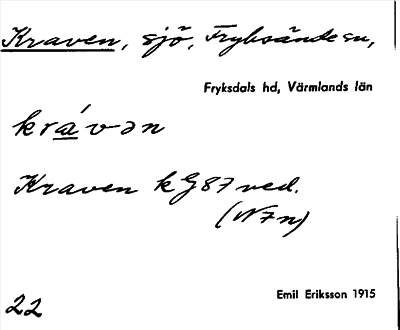 Kraven, sjö, Fryksände sn,
Fryksdals hd, Värmlands län
krá̲vən
Kraven kG 87 ved.
(N7n)
Emil Eriksson 1915
22